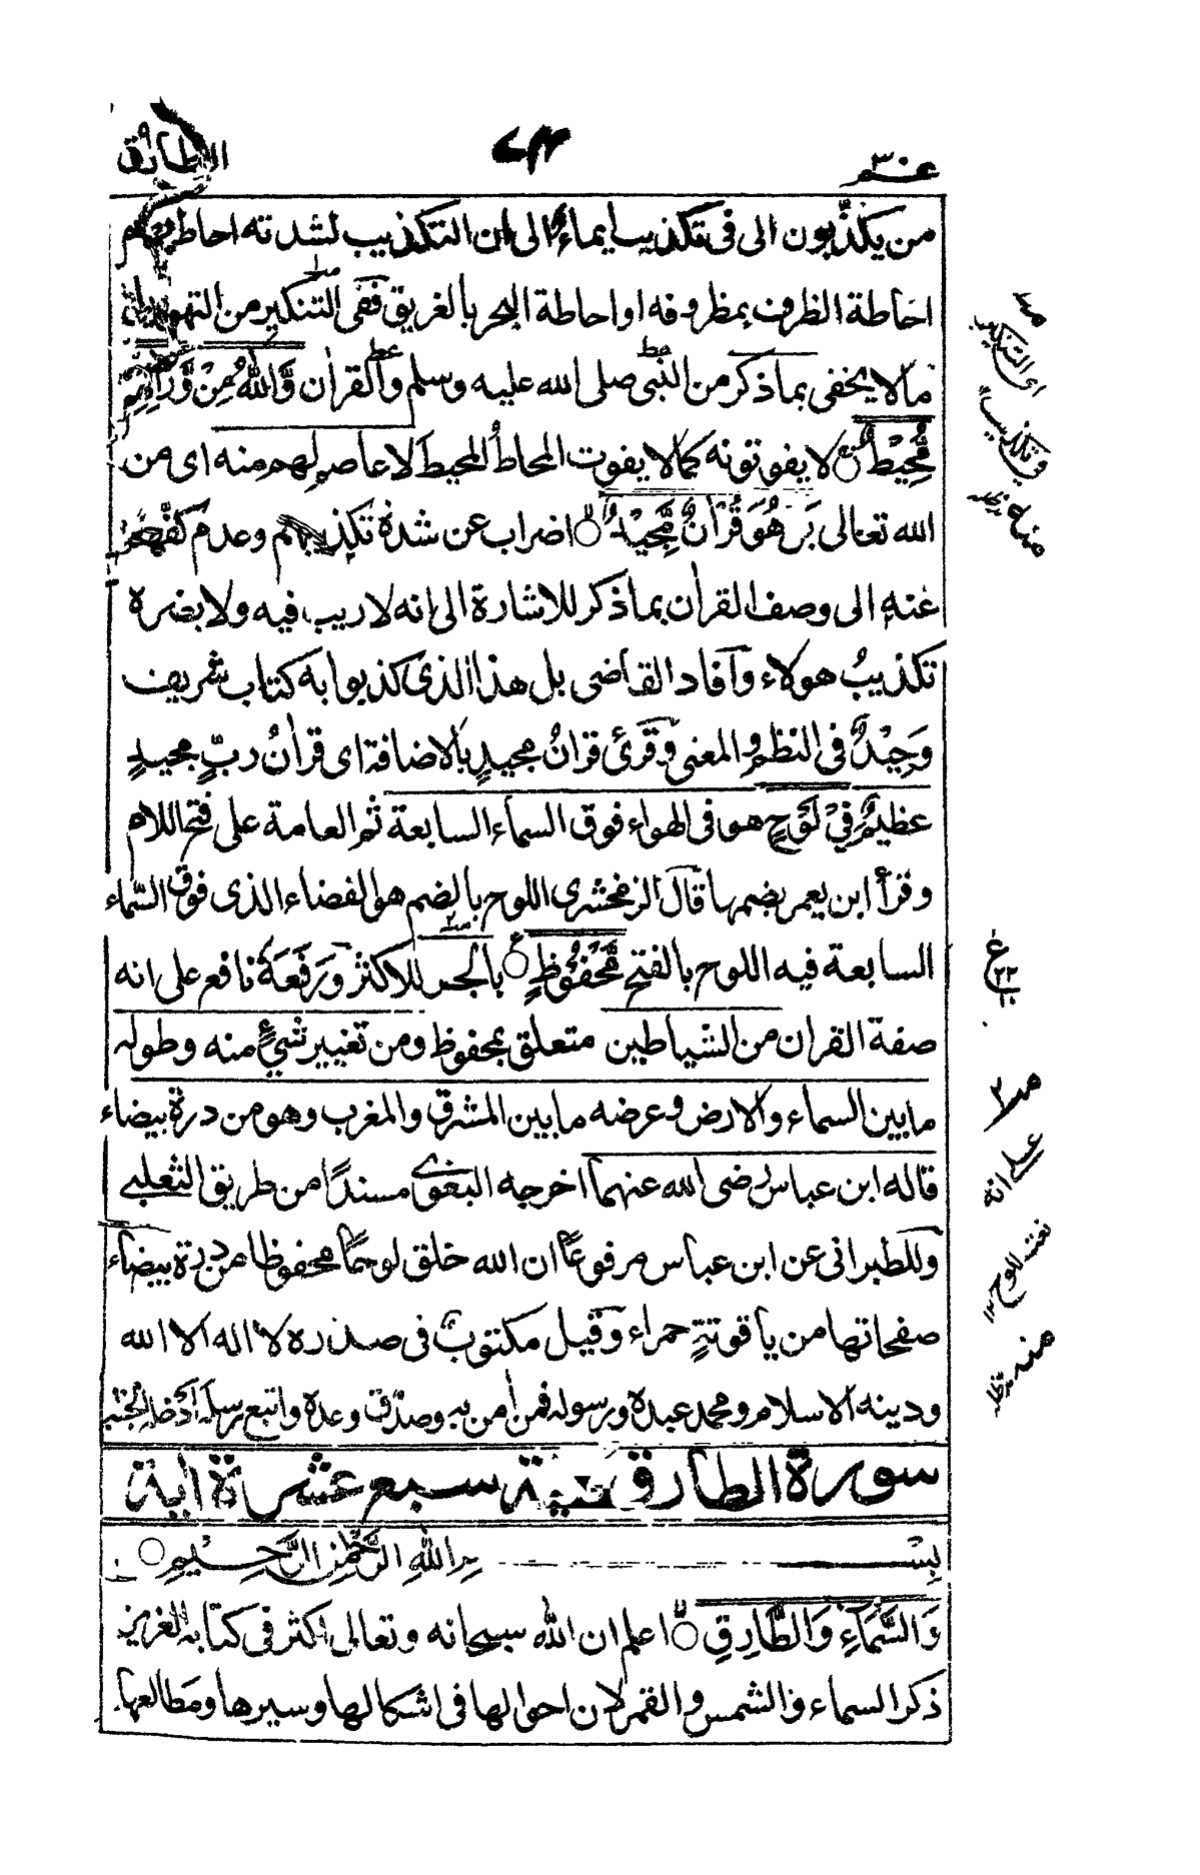 عم ٣٠
٧٢٣
الطارق
من يكذّبون الى فى تكذيب ايماءً الى ان التكذيب لشدته احاط بهم
احاطة الظرف بمظروفه او احاطة البحر بالغريق ففى التنكير من التهويل
مالا يخفى بما ذكر من النبى صلى الله عليه وسلم والقراٰن وَّاللّٰهُ مِنْ وَّرَآئِهِمْ
مُّحِيْطٌ لا يفوتونه كما لا يفوت المحاطُ المحيطَ لا عاصم لهم منه اى من
الله تعالى بَلْ هُوَ قُرْاٰنٌ مَّجِيْدٌ اضراب عن شدة تكذيبهم وعدم كفّهم
عنه الى وصف القراٰن بما ذكر للاشارة الى انه لاريب فيه ولا يضره
تكذيبُ هولاء وآفاد القاضى بل هذا الذى كذبوا به كتاب شريف
وحيدٌ فى النظم والمعنى وقرئ قراٰنُ مجيدٍ بالاضافة اى قراٰنُ ربٍّ مجيدٍ
عظيمٌ فِيْ لَوْحٍ هو فى الهواء فوق السماء السابعة ثم العامة على فتح اللام
وقرأ ابن يعمر بضمها قال الزمخشرى اللوح بالضم هو الفضاء الذى فوق السّماء
السابعة فيه اللوح بالفتح مَّحْفُوْظٍ بالجر للاكثر ورَفَعَهُ نافع على انه
صفة القراٰن من الشياطين متعلق بمحفوظ ومن تغيير شيءٍ منه وطوله
مابين السماء والارض وعرضه مابين المشرق والمغرب وهو من درة بيضاء
قاله ابن عباس رضى الله عنهما اخرجه البغوى مسندًا من طريق الثعلبي
وللطبرانى عن ابن عباس مرفوعًا ان الله خلق لوحًا محفوظا من درة بيضاء
صفحاتها من ياقوتةٍ حمراء وقيل مكتوبٌ فى صدره لا اله الا الله
ودينه الاسلام ومحمد عبده ورسوله فمن اٰمن به وصدّق وعده واتبع رسله ادخله الجنة
سورة الطارق مكية سبع عشرة اية
بِسْمِ اللّٰهِ الرَّحْمٰنِ الرَّحِيْمِ
وَالسَّمَآءِ وَالطَّارِقِ اعلم ان اللّٰه سبحانه وتعالى اكثر فى كتابه العزيز
ذكر السماء والشمس والقمر لان احوالها فى اشكالها وسيرها ومطالعها
اى التنكير
فى تكذيب
منه
ع
٢٢
على انه
نعت اللوح
منه